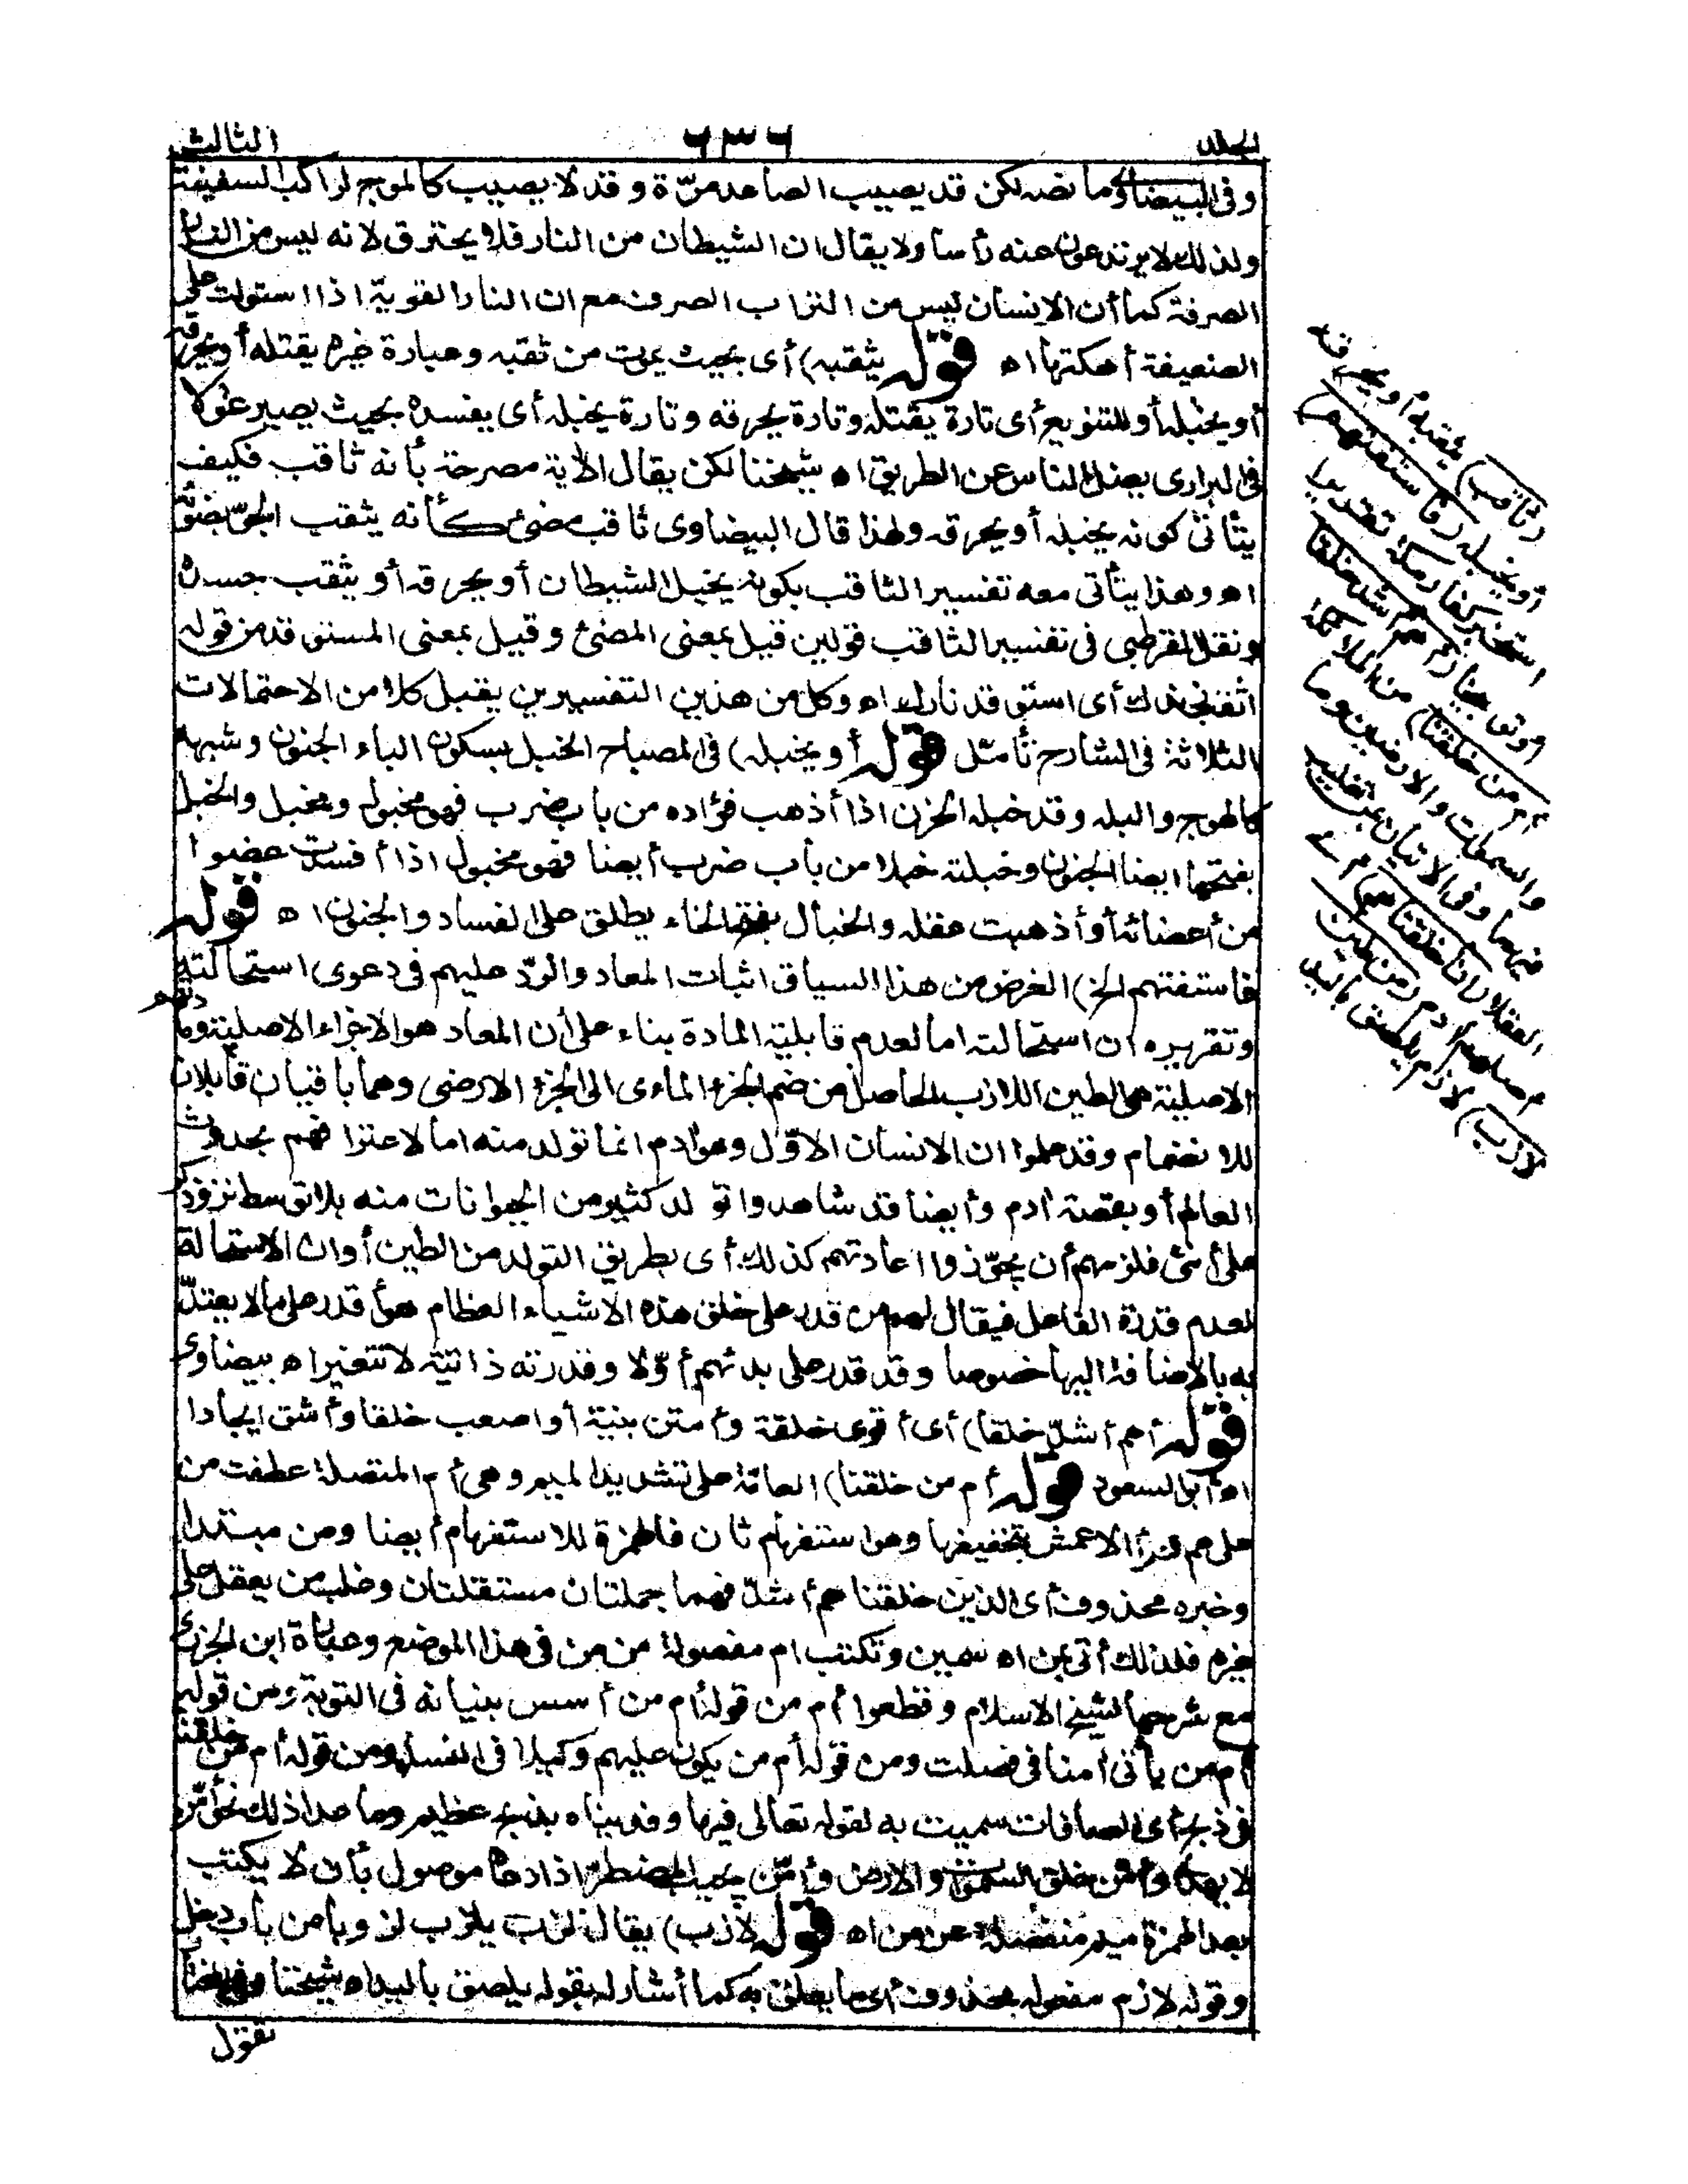 المجلد
٦٣٦
الثالث
وفى البيضاوى ما نصه لكن قد يصيب الصاعد مرّة وقد لا يصيب كالموج لراكب السفينة
ولذلك لا يرتدعون عنه رأسا ولا يقال ان الشيطان من النار فلا يحترق لانه ليس من النار
الصرفة كما أن الانسان ليس من التراب الصرف مع ان النار القوية اذا استولت على
الضعيفة أهلكتها اه قوله يثقبه) أى بحيث يموت من ثقبه وعبارة غيره يقتله أو يحرقه
أو يخبله أو للتنويع أى تارة يقتله وتارة يحرقه وتارة يخبله أى يفسده بحيث يصير غولا
فى البرارى يضل الناس عن الطريق اه شيخنا لكن يقال الآية مصرحة بأنه ثاقب فكيف
يتأتى كونه يخبله أو يحرقه ولهذا قال البيضاوى ثاقب مضئ كأنه يثقب الجوّ بضوئه
اه وهذا يتأتى معه تفسير الثاقب بكونه يخبل الشيطان أو يحرقه أو يثقب جسده
ونقل القرطبى فى تفسير الثاقب قولين قيل بمعنى المضئ وقيل بمعنى المستوقد من قوله
اثقب زندك أى استوقد نارك اه وكل من هذين التفسيرين يقبل كلا من الاحتمالات
الثلاثة فى الشارح تأمّل قوله أو يخبله) فى المصباح الخبل بسكون الباء الجنون وشبهه
كالهوج والبله وقد خبله الحزن اذا أذهب فؤاده من باب ضرب فهو مخبول ومخبل والخبل
بفتحها ايضا الجنون وخبلته خبلا من باب ضرب أيضا فهو مخبول اذا أفسدت عضوا
من أعضائه أو أذهبت عقله والخبال بفتح الخاء يطلق على الفساد والجنون اه قوله
فاستفتهم الخ) الغرض من هذا السياق اثبات المعاد والردّ عليهم فى دعوى استحالته
وتقريره أن استحالته اما لعدم قابلية المادة بناء على أن المعاد هو الاجزاء الاصلية ومادتهم
الاصلية هى الطين اللازب الحاصل من ضم الجزء المائى الى الجزء الارضى وهما باقيان قابلان
للانضمام وقد علموا ان الانسان الاوّل وهو آدم انما تولد منه اما لاعترافهم بحدوث
العالم أو بقصة آدم وأيضا قد شاهدوا تولد كثير من الحيوانات منه بلا توسط نزو ذكر
على أنثى فلزمهم أن يجوّزوا اعادتهم كذلك أى بطريق التولد من الطين أو ان الاستحالة
لعدم قدرة الفاعل فيقال لهم من قدر على خلق هذه الاشياء العظام هو أقدر على ما لا يعتدّ
به بالاضافة اليها خصوصا وقد قدر على بدئهم أوّلا وقدرته ذاتية لا تتغير اه بيضاوى
قوله أهم أشدّ خلقا) أى أقوى خلقة وأمتن بنية أو اصعب خلقا وأشق ايجادا
اه أبو السعود قوله أم من خلقنا) العامّة على تشديد الميم وهى أم المتصلة عطفت من
على هم وقرأ الاعمش بتخفيفها وهو استفهام ثان فالهمزة للاستفهام أيضا ومن مبتدا
وخبره محذوف أى الذين خلقنا هم أشدّ فهما جملتان مستقلتان وغلب من يعقل على
غيره فلذلك أتى بمن اه سمين وتكتب ام مفصولة من من فى هذا الموضع وعبارة ابن الجزرى
مع شرحها لشيخ الاسلام وقطعوا أم من قوله أم من أسس بنيانه فى التوبة ومن قوله
أم من يأتى آمنا فى فصلت ومن قوله أم من يكون عليهم وكيلا فى النساء ومن قوله أم من خلقنا
فى ذبح أى الصافات سميت به لقوله تعالى فيها وفديناه بذبح عظيم وما عدا ذلك نحو أمّن
لا يهدى وأمّن خلق السموات والارض وأمّن يجيب المضطرّ اذا دعاه موصول بأن لا يكتب
بعد الهمزة ميم منفصلة عن من اه قوله لازب) يقال لزب يلزب لزوبا من باب دخل
وقوله لازم مفعوله محذوف أى ما يعلق به كما أشار له بقوله يلصق باليد اه شيخنا
تقول
(ثاقب) يثقبه أو يحرقه
أو يخبله (فاستفتهم)
استخبر كفار مكة تقريرا
أو توبيخا (أهم أشد خلقا
أم من خلقنا) من الملائكة
والسموات والارضين وما
فيهما وفى الاتيان بمن تغليب
العقلاء (انا خلقناهم)
أى أصلهم آدم (من طين
لازب) لازم يلصق باليد